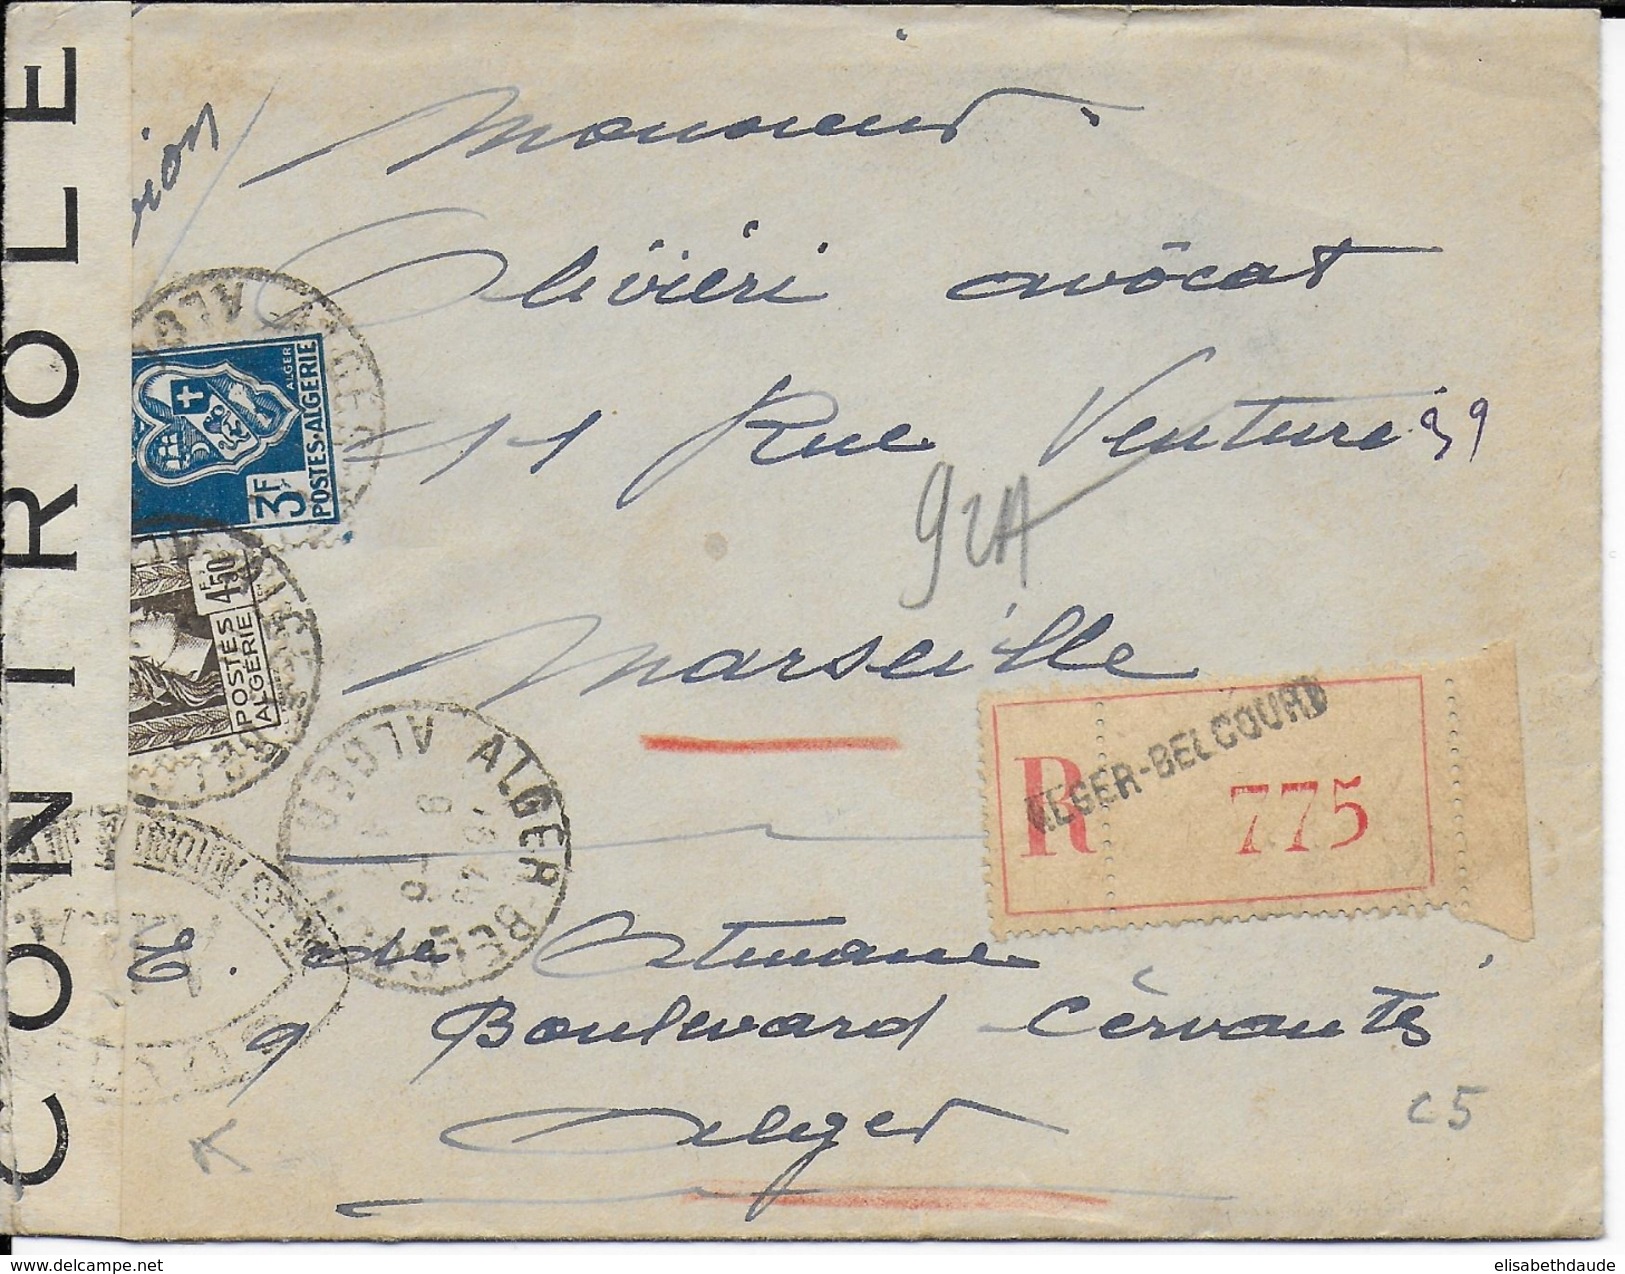 CONTROLE
Monsieur
Oliviéri avocat
11 Rue Venture 39
92A
Marseille
ALGER
POSTES-ALGERIE
3F
4F50
POSTES
ALGERIE
ALGER-BELCOURT
ALGER
R ALGER-BELCOURT
775
E. de Otmane
9 Boulevard Cèrvantès
Alger
C5
delcampe.net
elisabethdaude